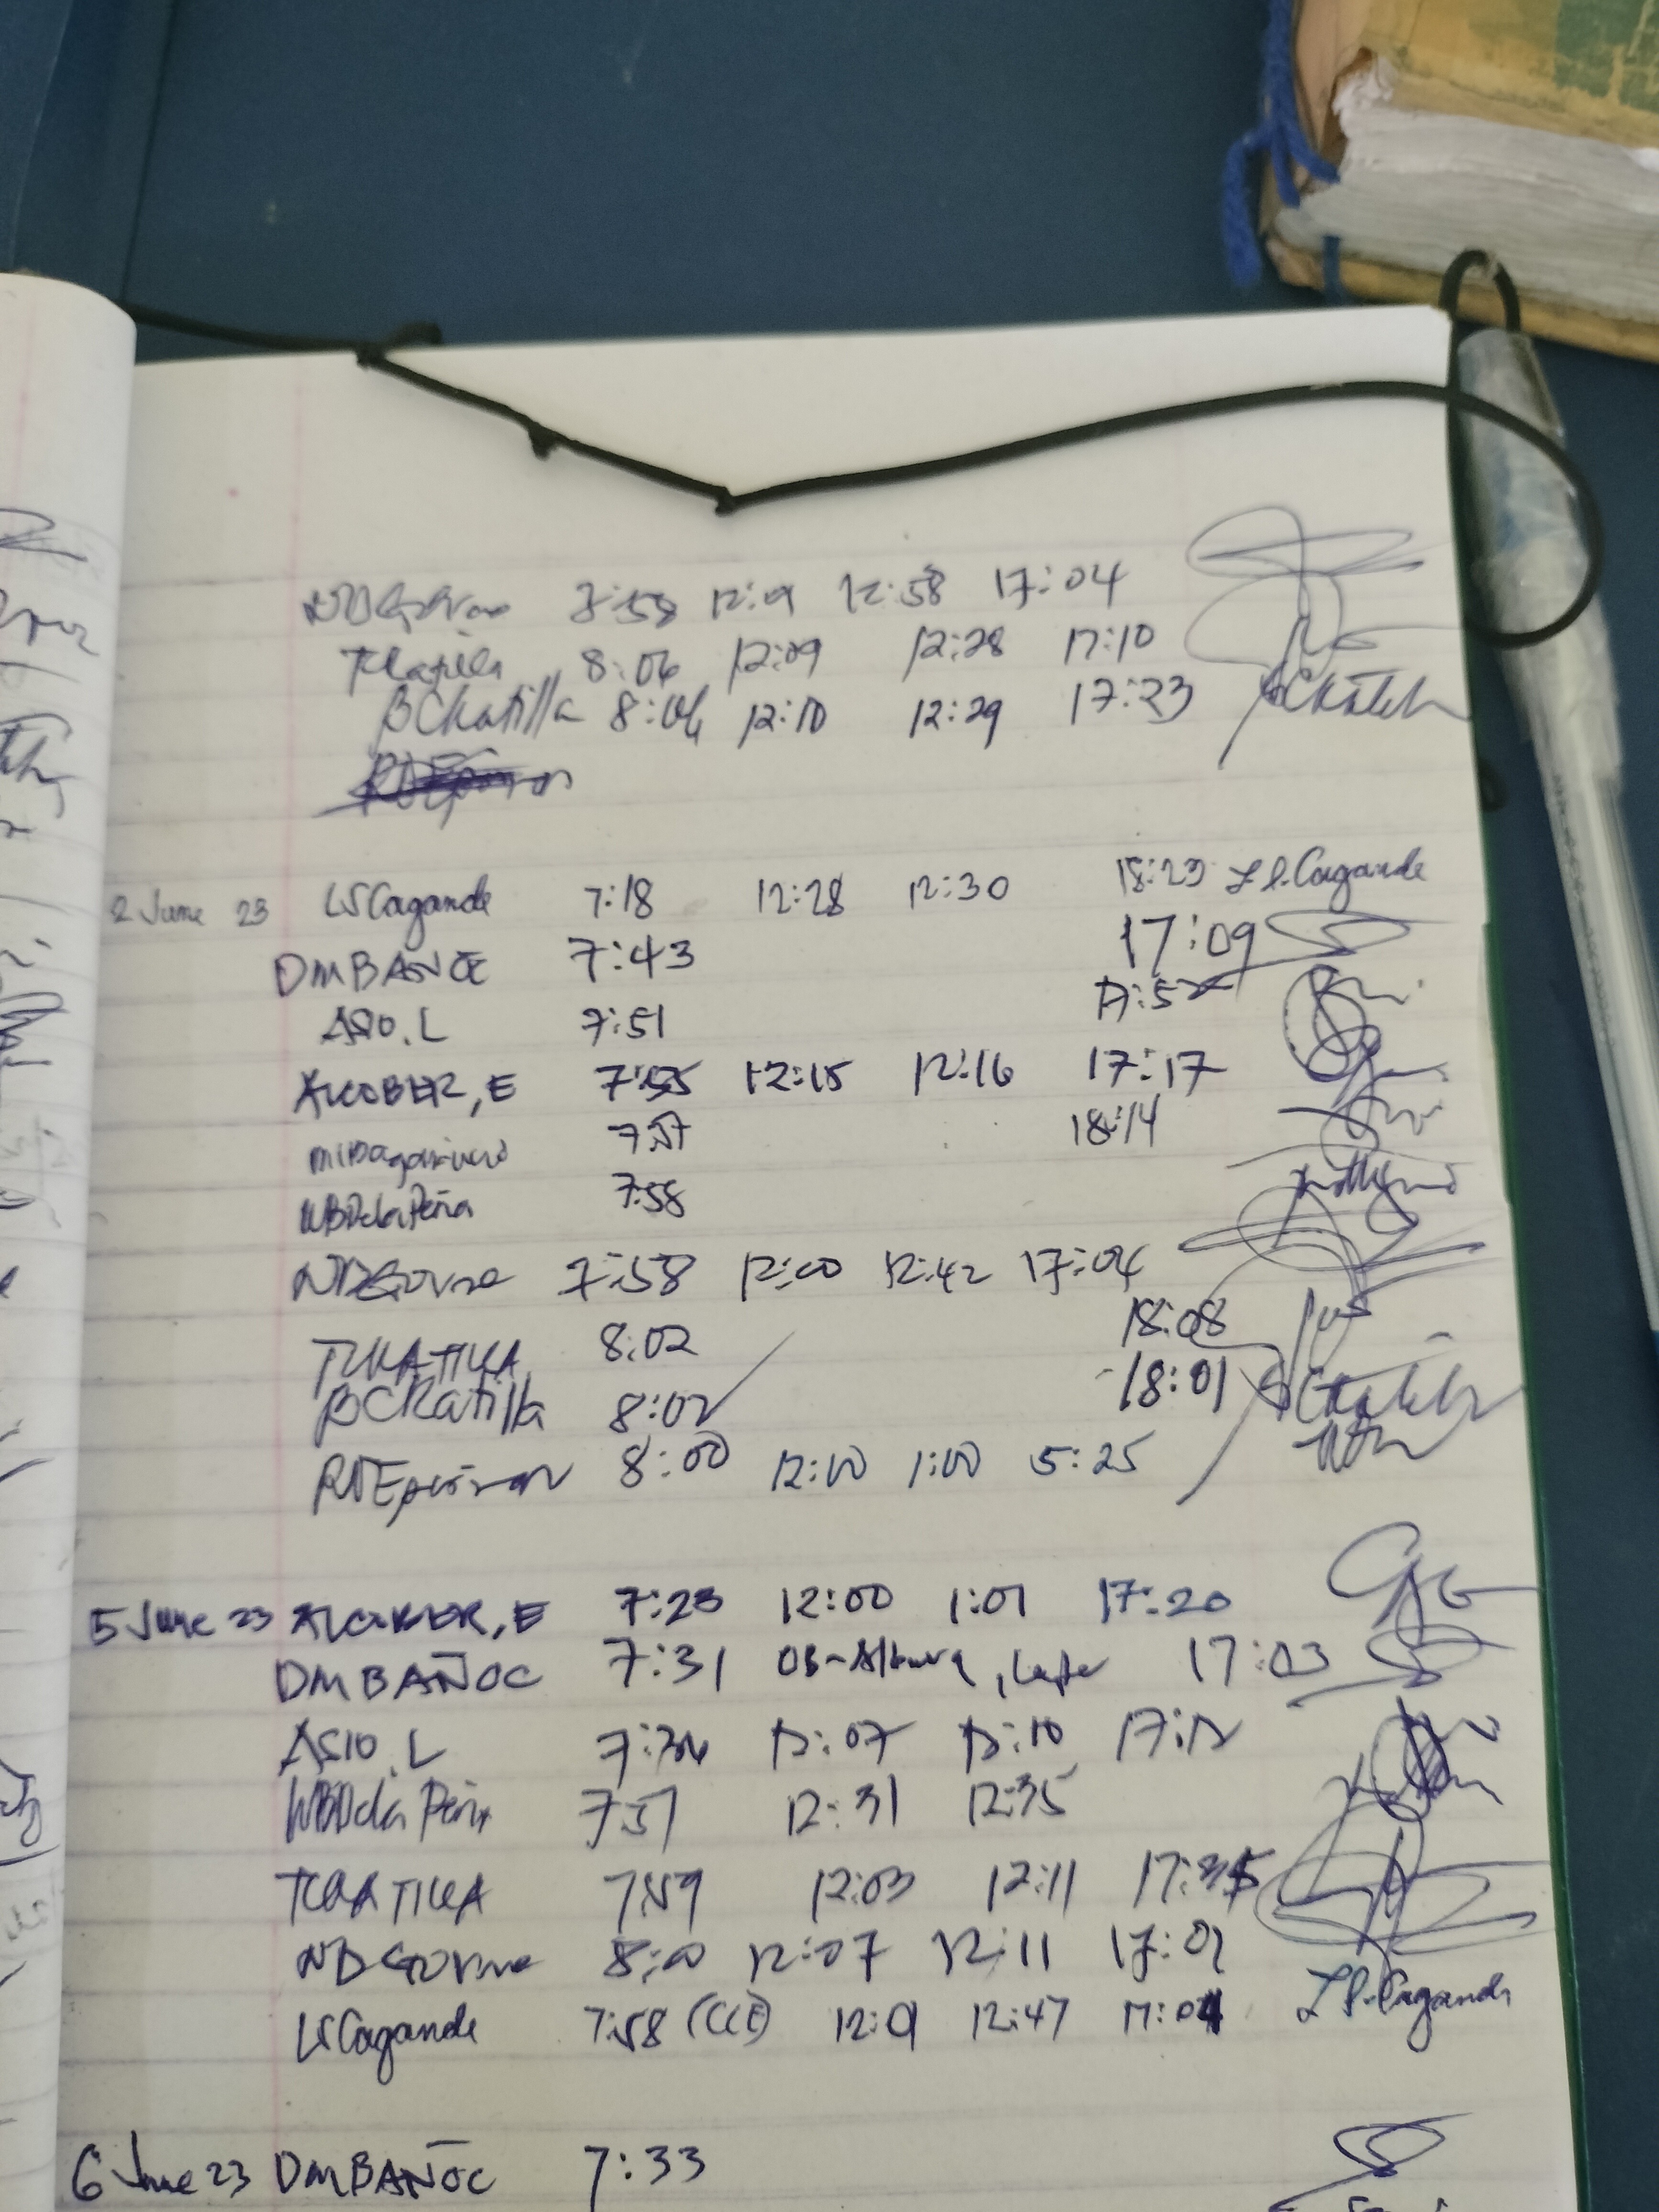 7:58 12:01 12:58 17:04
8:06 12:09 12:28 17:10
BCRatilla 8:06 12:10 12:29 17:23
2 June 23 LSCagande 7:18 12:28 12:30 18:23 L S. Cagande
DMBAÑOC 7:43 17:09
ASIO.L 7:51
ALCOBER, E 7:55 12:15 12:16 17:17
7:57 18:14
WBDelaPeña 7:58
7:58 12:00 12:42 17:04
TCRATILLA 8:02 18:08
BCRatilla 8:02 18:01
8:00 12:10 1:00 5:25
5 June 23 ALCOBER, E 7:23 12:00 1:01 17:20
DMBAÑOC 7:31 OB- 17:03
ASIO.L 7:34 12:07 12:10 17:12
WBDela Peña 7:57 12:31 12:35
TCRATILLA 7:59 12:03 12:11 17:35
8:00 12:07 12:11 17:01
LSCagande 7:58 12:01 12:47 17:04 L S. Cagande
6 June 23 DMBAÑOC 7:33